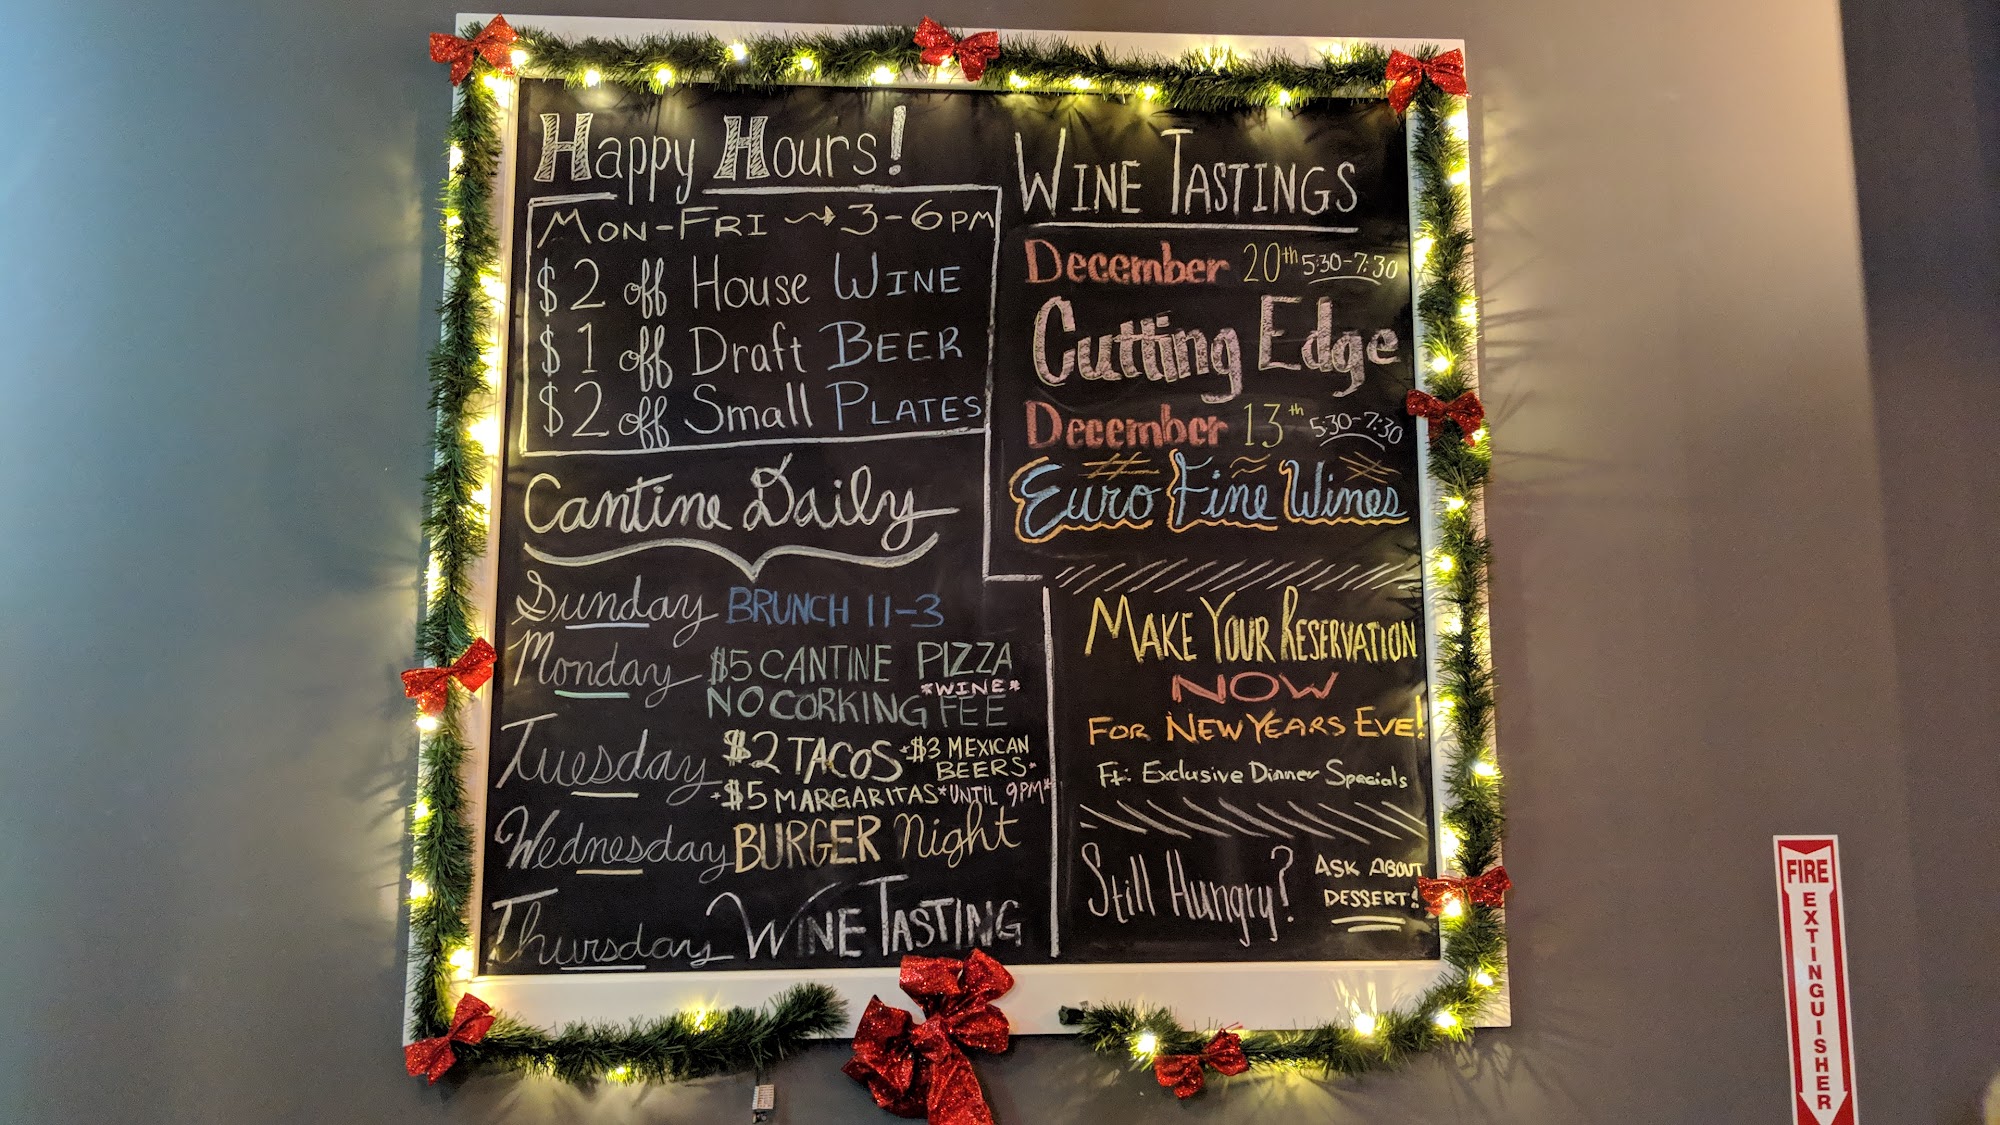 Happy Hours!
MON-FRI → 3-6PM
$2 off House WINE
$1 off Draft BEER
$2 off Small PLATES
Cantine Daily
Sunday BRUNCH 11-3
Monday $5 CANTINE PIZZA
NO CORKING *WINE* FEE
Tuesday $2 TACOS *$3 MEXICAN
BEERS*
*$5 MARGARITAS *UNTIL 9PM*
Wednesday BURGER Night
Thursday WINE TASTING
WINE TASTINGS
December 20th 5:30-7:30
Cutting Edge
December 13th 5:30-7:30
Euro Fine Wines
MAKE YOUR RESERVATION
NOW
FOR NEW YEARS EVE!
Ft: Exclusive Dinner Specials
Still Hungry? ASK ABOUT
DESSERT!
FIRE
EXTINGUISHER